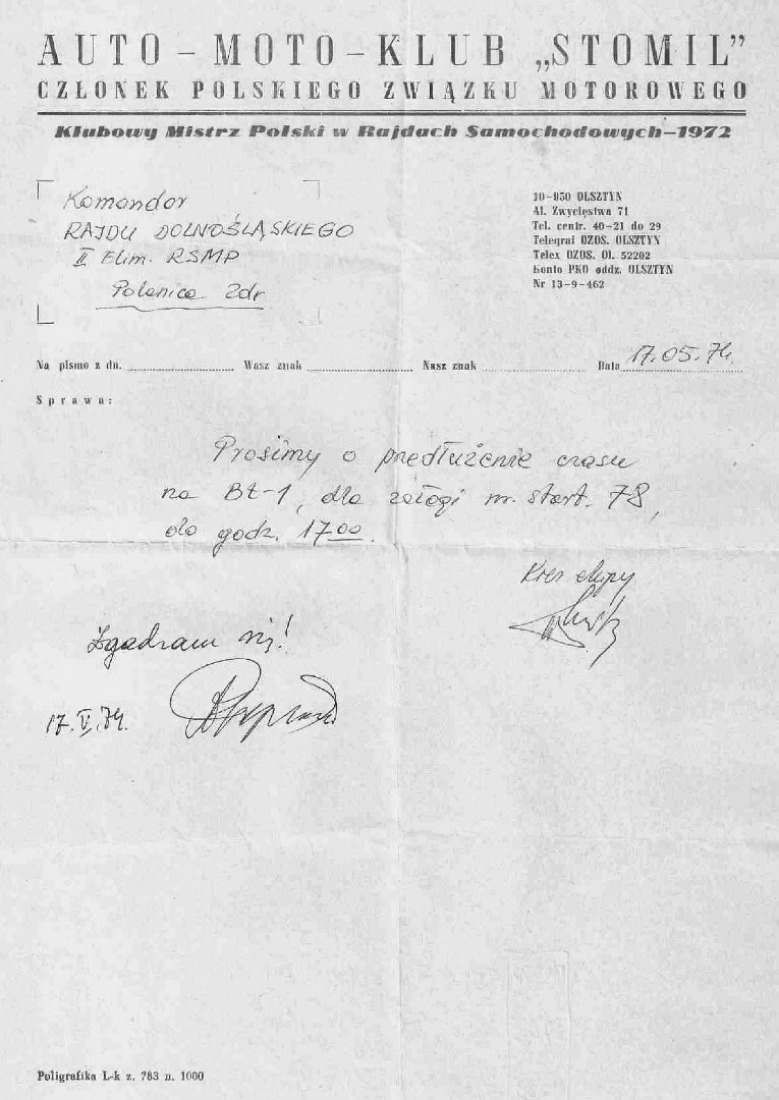 AUTO – MOTO – KLUB „STOMIL”
CZŁONEK POLSKIEGO ZWIĄZKU MOTOROWEGO
Klubowy Mistrz Polski w Rajdach Samochodowych–1972
Komandor
RAJDU DOLNOŚLĄSKIEGO
II Elim. RSMP
Polanica Zdr
10–950 OLSZTYN
Al. Zwycięstwa 71
Tel. centr. 40–21 do 29
Telegraf OZOS. OLSZTYN
Telex OZOS. Ol. 52202
Konto PKO oddz. OLSZTYN
Nr 13–9–462
Na pismo z dn. Wasz znak Nasz znak Data 17.05.74.
Sprawa:
Prosimy o przedłużenie czasu
na Bt-1, dla załogi nr. start. 78,
do godz. 17⁰⁰.
Kier ekipy
Zgadzam się!
17.V.74.
Poligrafika L-k z. 783 n. 1000